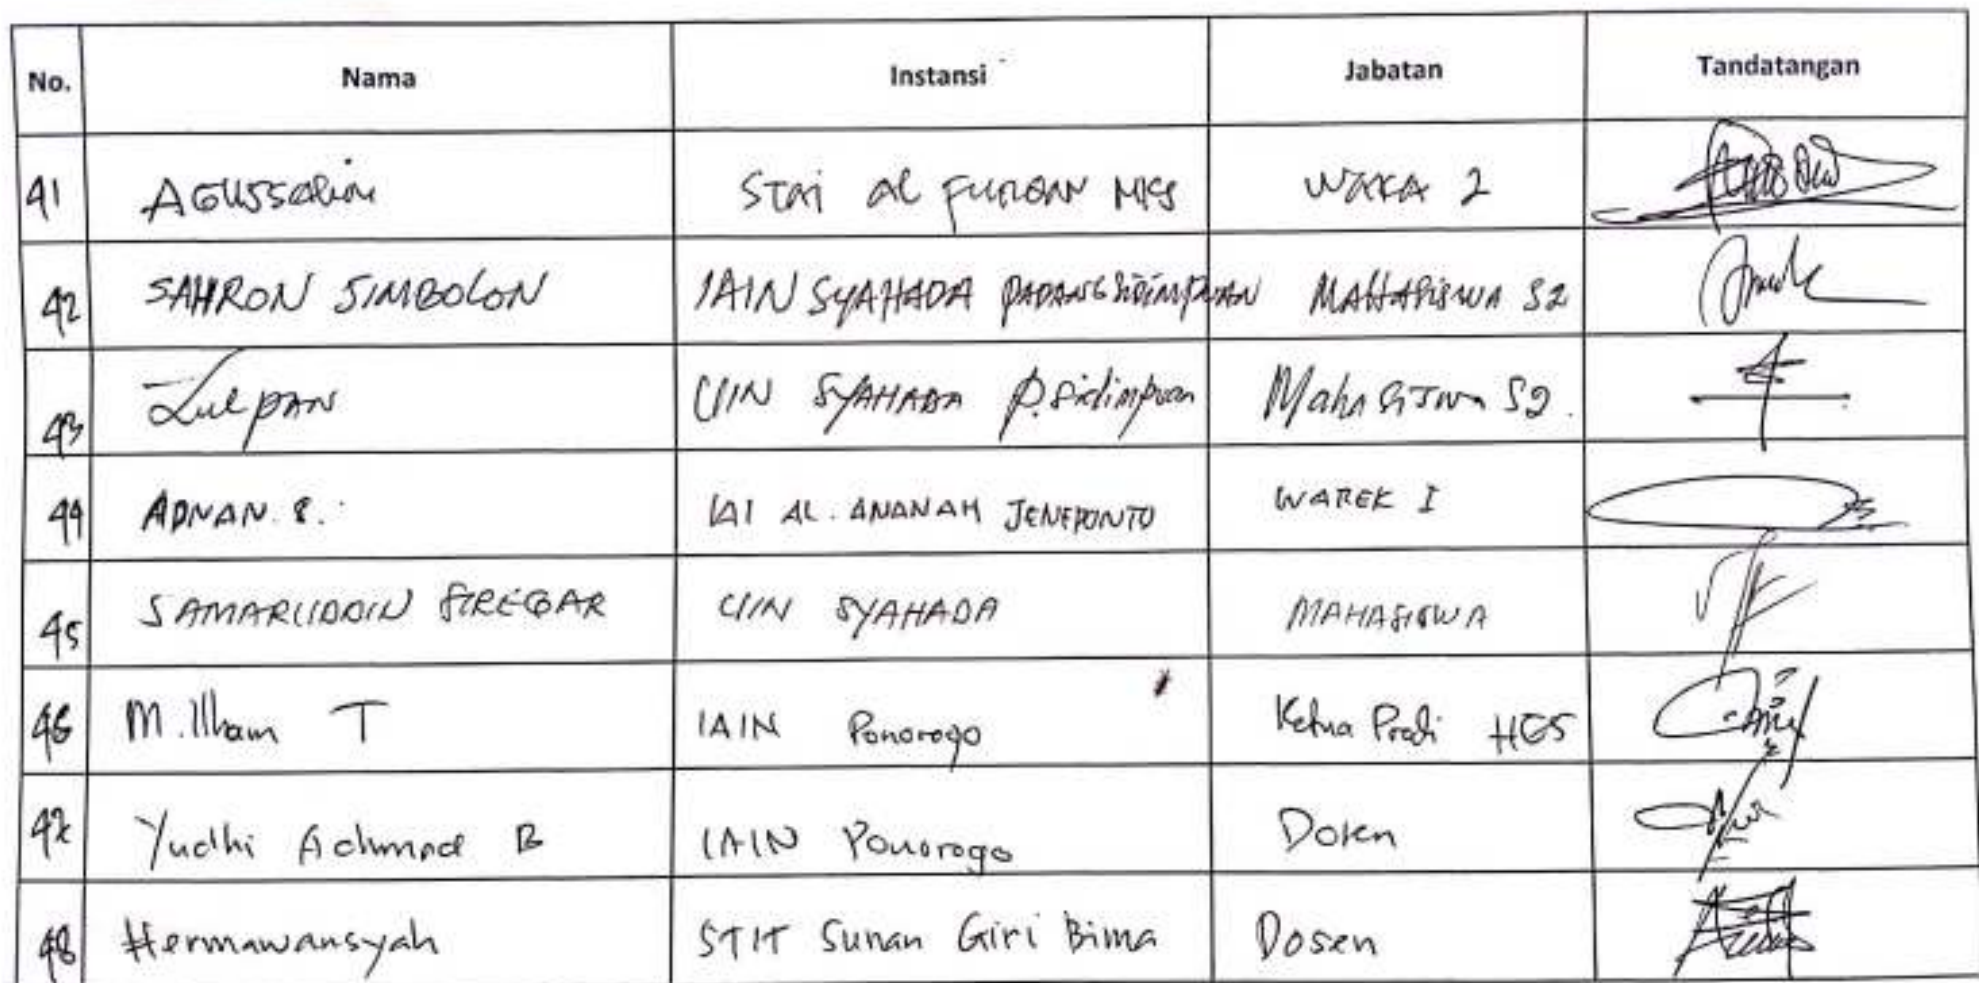 No. Nama Instansi Jabatan Tandatangan
41 AGUSSALIM STAI AL FURQAN MKS WAKA 2
42 SAHRON SIMBOLON IAIN SYAHADA PADANGSIDIMPUAN MAHASISWA S2
43 Zulpan UIN SYAHADA P.Sidimpuan Mahasiswa S2.
44 ADNAN. S. IAI AL. AMANAH JENEPONTO WAREK I
45 SAMARUDDIN SIREGAR UIN SYAHADA MAHASISWA
46 M. Ilham T IAIN Ponorogo Ketua Prodi HES
47 Yudhi Achmad B IAIN Ponorogo Dosen
48 Hermawansyah STIT Sunan Giri Bima Dosen